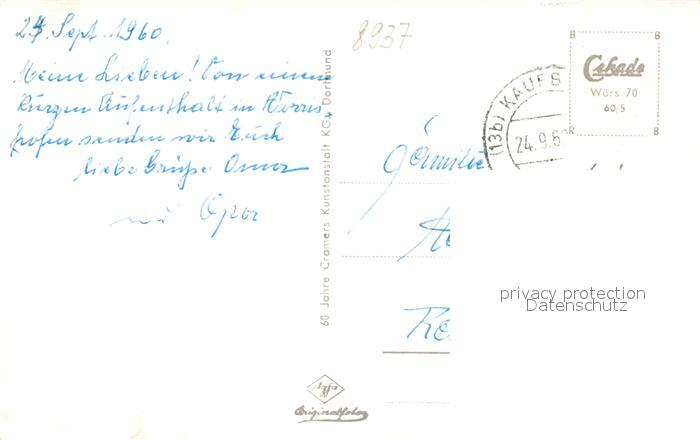 24. Sept. 1960.
Meine Lieben! Von einem
kurzen Aufenthalt in Wöris
hofen senden wir Euch
liebe Grüße Oma
u. Opa
8937
60 Jahre Cramers Kunstanstalt KG., Dortmund
B B
Cekade
Wörs 70
60/5
B B
(13b) KAUFB
24.9.6
Familie
privacy protection
Datenschutz
Agfa
Originalfoto